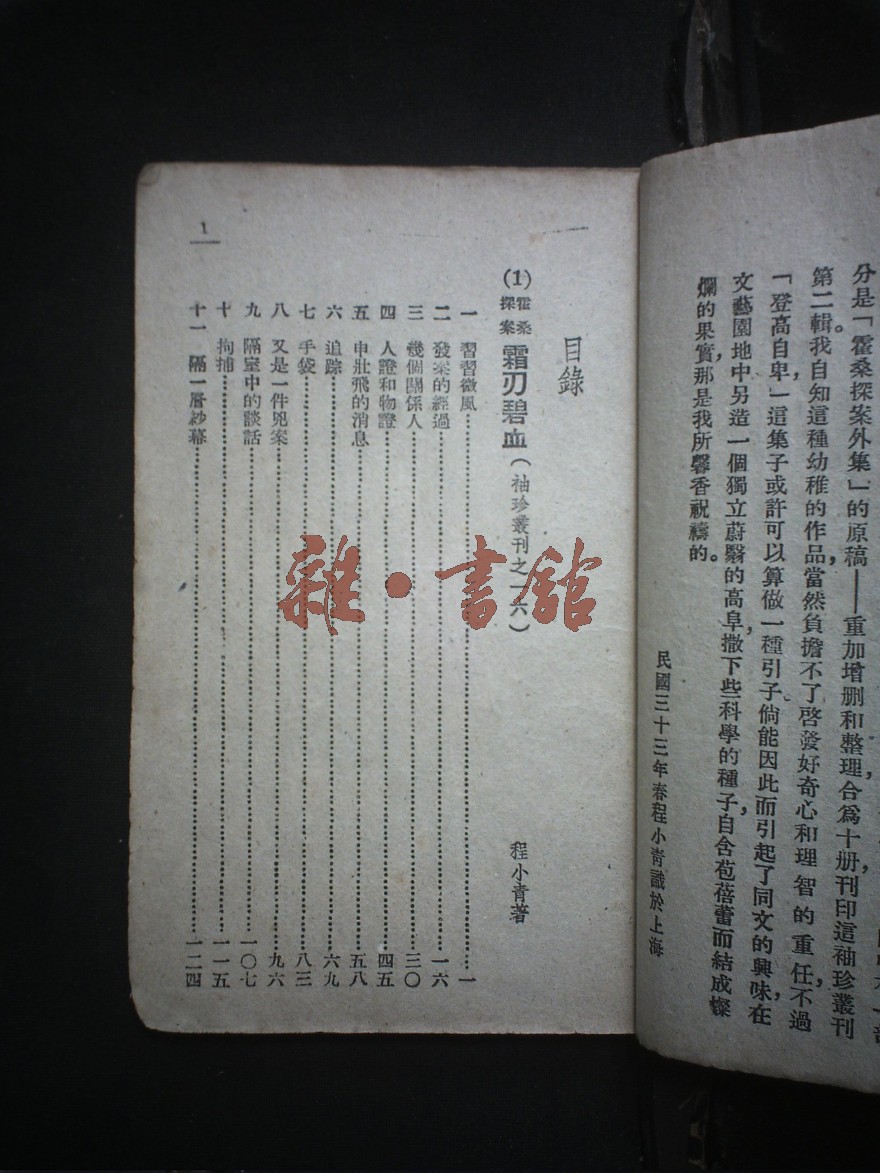 分是「霍桑探案外集」的原稿——重加增刪和整理，合爲十册，刊印這袖珍叢刊
第二輯。我自知這種幼稚的作品，當然負擔不了啓發好奇心和理智的重任，不過
「登高自卑」，這集子或許可以算做一種引子。倘能因此而引起了同文的興味，在
文藝園地中另造一個獨立蔚翳的高阜，撒下些科學的種子，自含苞蓓蕾而結成燦
爛的果實，那是我所馨香祝禱的。
民國三十三年春程小青識於上海
目錄
(1)霍桑探案 霜刃碧血（袖珍叢刊之一六）
程小青著
一 習習微風……一
二 發案的經過……一六
三 幾個關係人……三〇
四 人證和物證……四五
五 申壯飛的消息……五八
六 追踪……六九
七 手袋……八三
八 又是一件兇案……九六
九 隔室中的談話……一〇七
十 拘捕……一一五
十一 隔一層紗幕……一二四
1
雜·書館